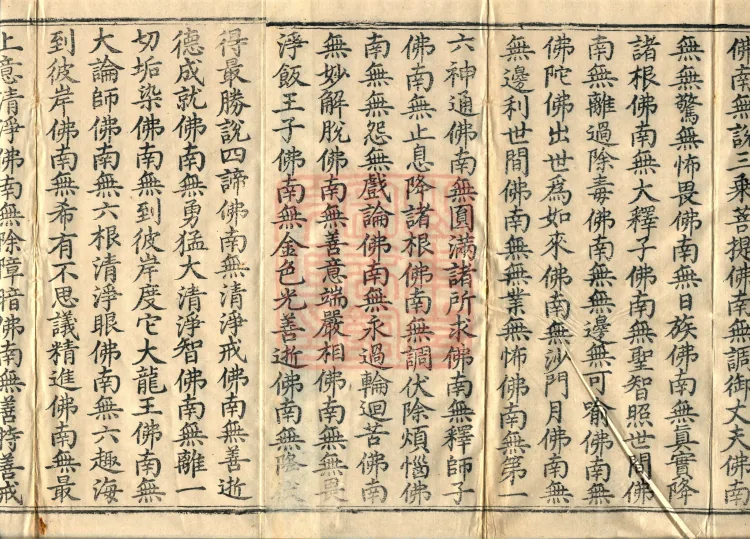 佛南無說三乘菩提佛南無調御丈夫佛南
無無驚無怖畏佛南無日族佛南無真實降
諸根佛南無大釋子佛南無聖智照世間佛
南無離過除毒佛南無無邊無可喻佛南無
佛陀佛出世為如來佛南無沙門月佛南無
無邊利世間佛南無無業無怖佛南無第一
六神通佛南無圓滿諸所求佛南無釋師子
佛南無止息降諸根佛南無調伏除煩惱佛
南無無怨無戲論佛南無永過輪迴苦佛南
無妙解脫佛南無善意端嚴相佛南無無畏
淨飯王子佛南無金色光善逝佛南無
得最勝說四諦佛南無清淨戒佛南無善逝
德成就佛南無勇猛大清淨智佛南無離一
切垢染佛南無到彼岸度它大龍王佛南無
大論師佛南無六根清淨眼佛南無六趣海
到彼岸佛南無希有不思議精進佛南無最
上意清淨佛南無除障暗佛南無善時善戒